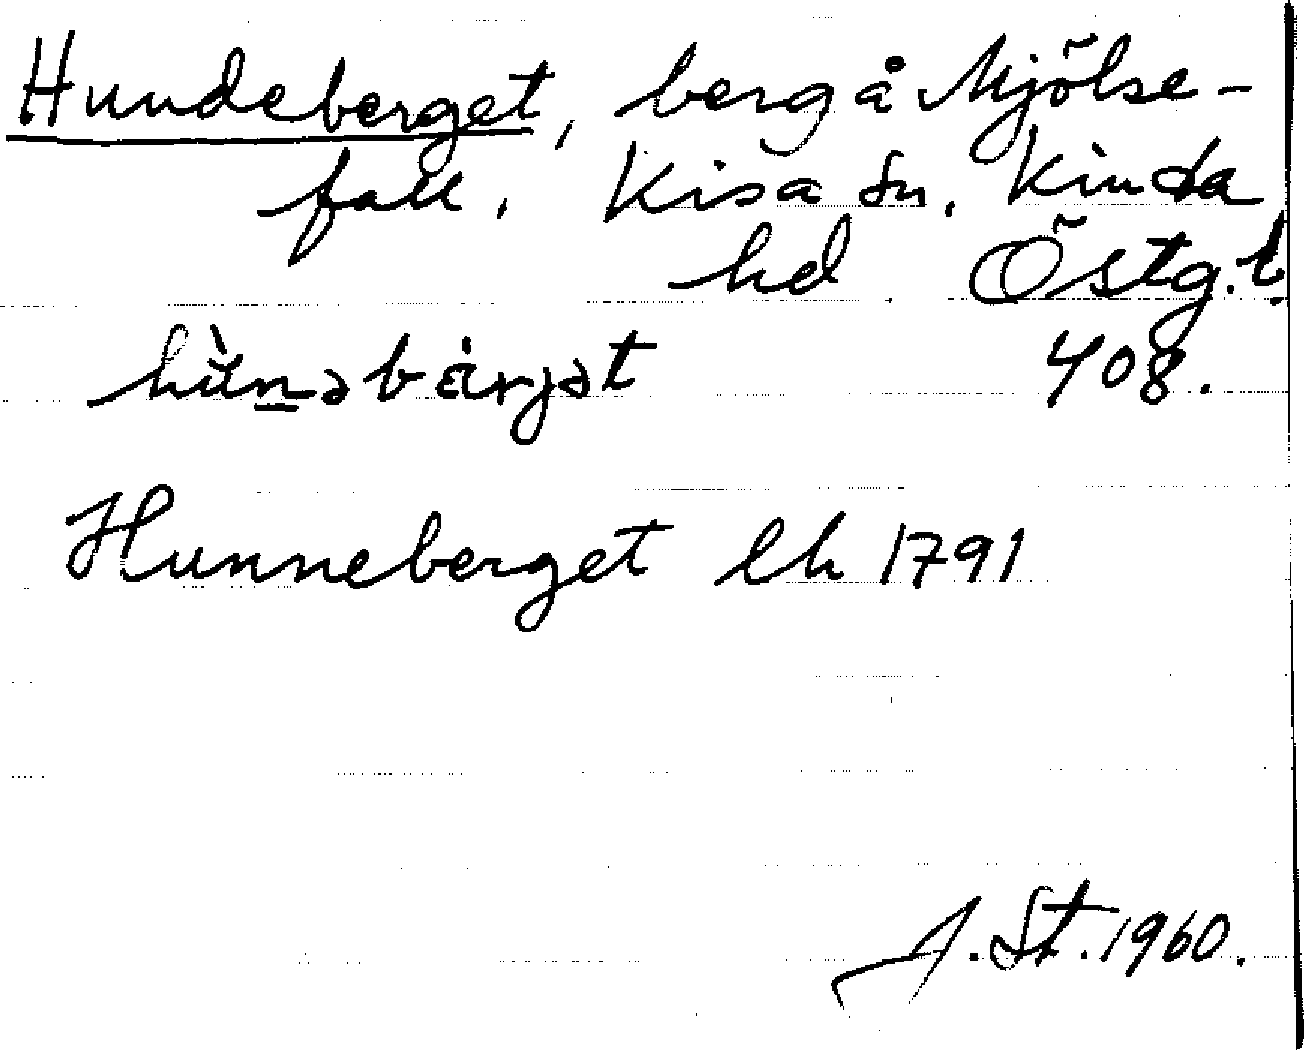 Hundeberget, berg å Mjölse-
fall, Kisa sn, Kinda
hd Östg.l.
hùnəbárjət 408.
Hunneberget lh 1791
J. St. 1960.